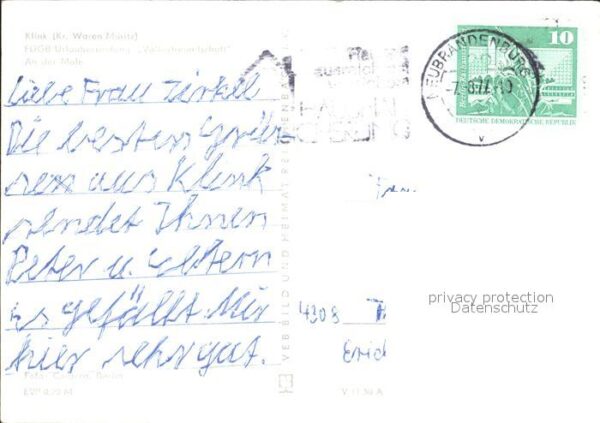 Klink (Kr. Waren Müritz)
FDGB Urlaubersiedlung "Völkerfreundschaft"
An der Mole
Liebe Frau Zirkel
Die besten Grüs
sen aus Klink
sendet Ihnen
Peter u. Eltern
Es gefällt Mir
hier sehr gut.
Foto: Berlin
EVP 0,20 M
VEB BILD UND HEIMAT REICHENBACH
V 11 50 A
NEUBRANDENBURG
10
DEUTSCHE DEMOKRATISCHE REPUBLIK
Frau
4308
Erich
privacy protection
Datenschutz